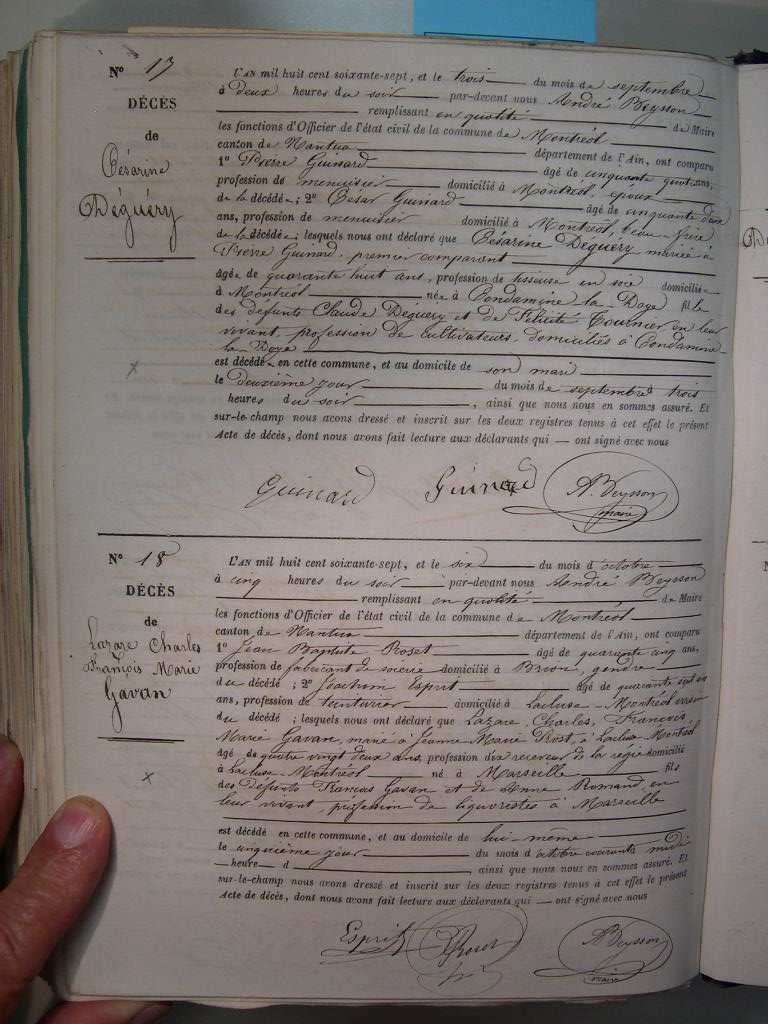 N° 17
DÉCÈS
de
Césarine
Déguéry
L'AN mil huit cent soixante-sept, et le trois du mois de septembre
à deux heures du soir par-devant nous André Beysson
remplissant en qualité de Maire
les fonctions d'Officier de l'état civil de la commune de Montréal
canton de Nantua département de l'Ain, ont comparu
1° Pierre Guinard âgé de cinquante ans,
profession de menuisier domicilié à Montréal, époux
de la décédée ; 2° César Guinard âgé de cinquante deux
ans, profession de menuisier domicilié à Montréal, beau-frère
de la décédée ; lesquels nous ont déclaré que Césarine Deguery mariée à
Pierre Guinard, premier comparant
âgée de quarante huit ans, profession de tisseuse en soie domiciliée
à Montréal née à Condamine la Doye fille
des défunts Claude Déguery et de Félicité Tournier en leur
vivant, profession de cultivateurs, domiciliés à Condamine
la Doye
est décédée en cette commune, et au domicile de son mari
le deuxième jour du mois de septembre trois
heures du soir , ainsi que nous nous en sommes assuré. Et
sur-le-champ nous avons dressé et inscrit sur les deux registres tenus à cet effet le présent
Acte de décès, dont nous avons fait lecture aux déclarants qui — ont signé avec nous
Guinard Guinard A. Beysson
maire
N° 18
DÉCÈS
de
Lazare Charles
François Marie
Gavan
L'AN mil huit cent soixante-sept, et le six du mois d'octobre
à cinq heures du soir par-devant nous André Beysson
remplissant en qualité de Maire
les fonctions d'Officier de l'état civil de la commune de Montréal
canton de Nantua département de l'Ain, ont comparu
1° Jean Baptiste Roset âgé de quarante cinq ans,
profession de fabricant de soierie domicilié à Brion, gendre
du décédé ; 2° Joachim Esprit âgé de quarante sept
ans, profession de teinturier domicilié à Lacluse-Montréal voisin
du décédé ; lesquels nous ont déclaré que Lazare, Charles, François
Marie Gavan, marié à Jeanne Marie Rost, à Lacluse Montréal
âgé de quatre vingt deux ans, profession receveur de la régie domicilié
à Lacluse-Montréal né à Marseille fils
des défunts François Gavan et de Anne Romand, en
leur vivant, profession de liquoristes à Marseille
est décédé en cette commune, et au domicile de lui-même
le cinquième jour du mois d'octobre courant, midi
heure d , ainsi que nous nous en sommes assuré. Et
sur-le-champ nous avons dressé et inscrit sur les deux registres tenus à cet effet le présent
Acte de décès, dont nous avons fait lecture aux déclarants qui — ont signé avec nous
Esprit Roset A. Beysson
maire